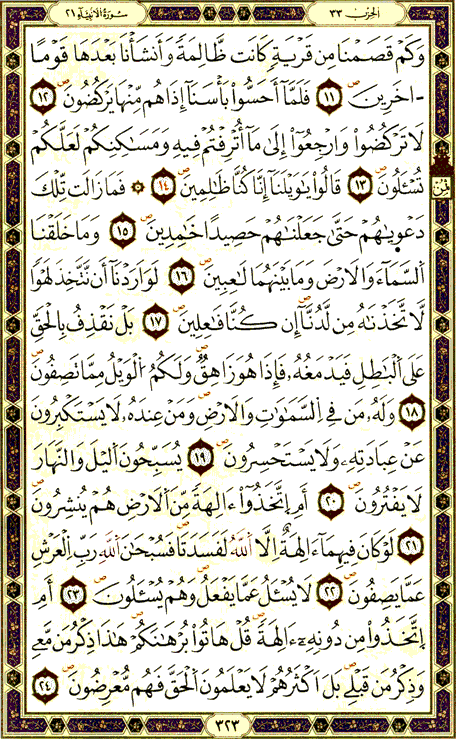 الحِزب ٣٣ سُورَةُ الأَنبِيَاء ٢١
وَكَمْ قَصَمْنَا مِن قَرْيَةٍ كَانَت ظَّالِمَةً وَأَنشَأْنَا بَعْدَهَا قَوْمًا
ـاخَرِينَ ١١ فَلَمَّآ أَحَسُّواْ بَأْسَنَآ إِذَا هُم مِّنْهَا يَرْكُضُونَ ١٢
لَا تَرْكُضُواْ وَارْجِعُوٓاْ إِلَىٰ مَآ أُتْرِفْتُمْ فِيهِ وَمَسَٰكِنِكُمْ لَعَلَّكُمْ
تُسْـَٔلُونَ ١٣ قَالُواْ يَٰوَيْلَنَآ إِنَّا كُنَّا ظَٰلِمِينَ ١٤ ۞ فَمَا زَالَت تِّلْكَ
دَعْوٜىٰهُمْ حَتَّىٰ جَعَلْنَٰهُمْ حَصِيدًا خَٰمِدِينَ ١٥ وَمَا خَلَقْنَا
اَلسَّمَآءَ وَالَارْضَ وَمَا بَيْنَهُمَا لَٰعِبِينَ ١٦ لَوَ اَرَدْنَآ أَن نَّتَّخِذَ لَهْوًا
لَّاتَّخَذْنَٰهُ مِن لَّدُنَّآ إِن كُنَّا فَٰعِلِينَ ١٧ بَلْ نَقْذِفُ بِالْحَقِّ
عَلَى اَلْبَٰطِلِ فَيَدْمَغُهُۥ فَإِذَا هُوَ زَاهِقٌ وَلَكُمُ اُلْوَيْلُ مِمَّا تَصِفُونَ
١٨ وَلَهُۥ مَن فِى اِلسَّمَٰوَٰتِ وَالَارْضِ وَمَنْ عِندَهُۥ لَا يَسْتَكْبِرُونَ
عَنْ عِبَادَتِهِۦ وَلَا يَسْتَحْسِرُونَ ١٩ يُسَبِّحُونَ اَلْيْلَ وَالنَّهَارَ
لَا يَفْتُرُونَ ٢٠ أَمِ اِتَّخَذُوٓاْ ءَالِهَةً مِّنَ اَلَارْضِ هُمْ يُنشِرُونَ
٢١ لَوْ كَانَ فِيهِمَآ ءَالِهَةٌ اِلَّا اَللَّهُ لَفَسَدَتَا فَسُبْحَٰنَ اَللَّهِ رَبِّ اِلْعَرْشِ
عَمَّا يَصِفُونَ ٢٢ لَا يُسْـَٔلُ عَمَّا يَفْعَلُ وَهُمْ يُسْـَٔلُونَ ٢٣ أَمِ
اِتَّخَذُواْ مِن دُونِهِۦٓ ءَالِهَةً قُلْ هَاتُواْ بُرْهَٰنَكُمْ هَٰذَا ذِكْرُ مَن مَّعِے
وَذِكْرُ مَن قَبْلِے بَلَ اَكْثَرُهُمْ لَا يَعْلَمُونَ اَلْحَقَّ فَهُم مُّعْرِضُونَ ٢٤
٣٢٣